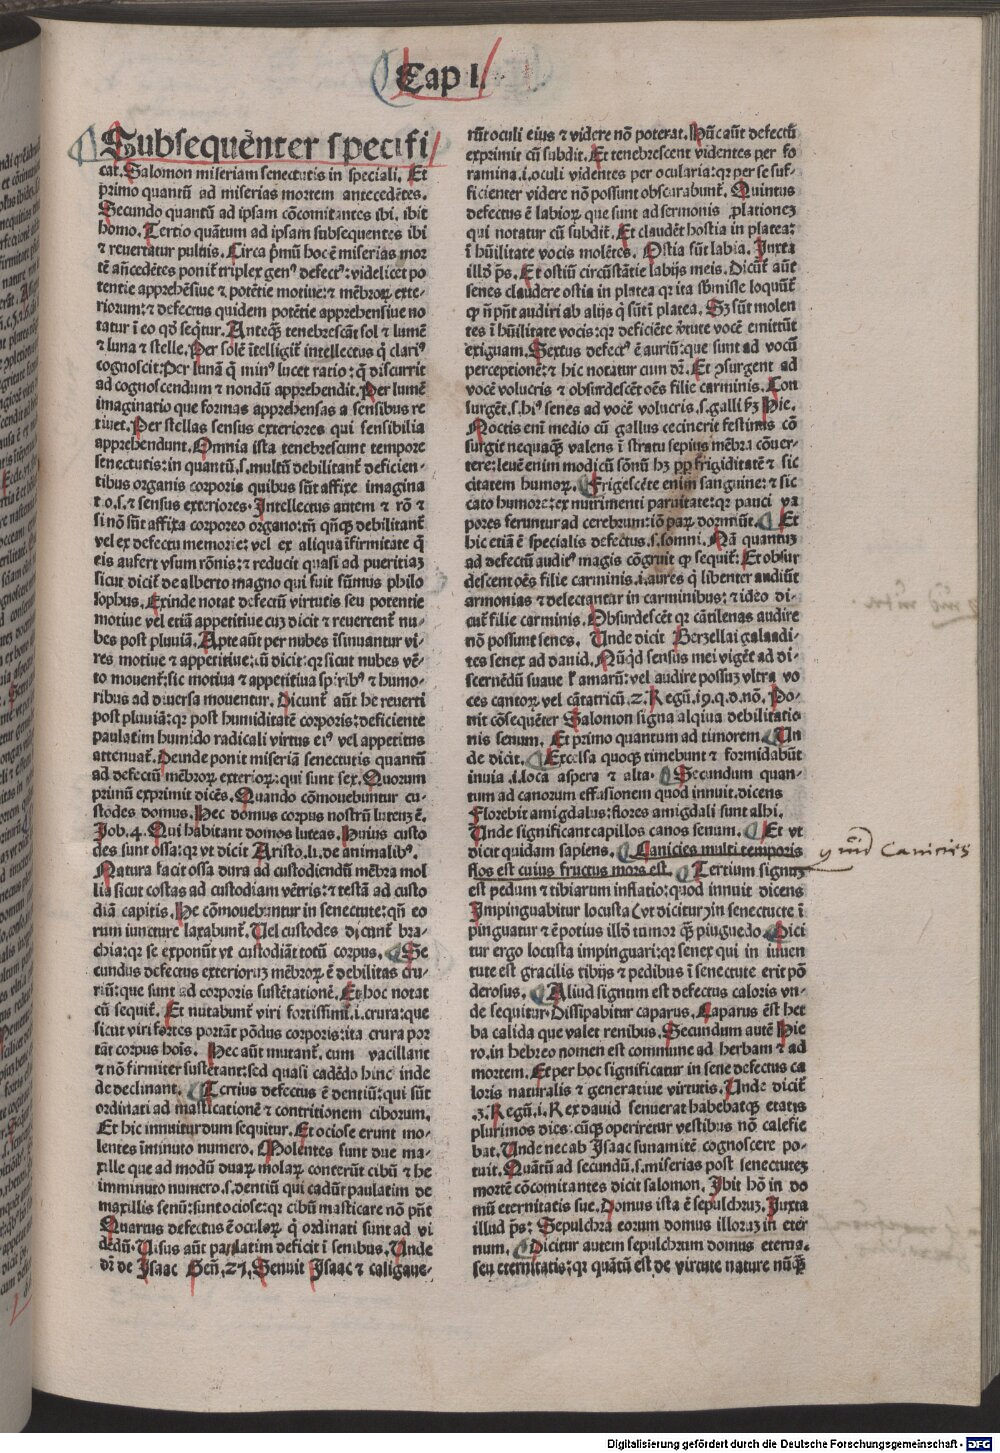 Cap I.
Subsequēnter specifi
cat. Salomon miseriam senectutis in speciali. Et
primo quantū ad miserias mortem antecedētes.
Secundo quantū ad ipsam cōcomitantes ibi, ibit
homo. Tertio quātum ad ipsam subsequentes ibi
⁊ reuertatur puluis. Circa pͥmū hoc ē miserias mor
tē añcedētes ponit᷑ triplex genꝰ defectꝰ: videlicet po
tentie apprehēsiue ⁊ potētie motiue: ⁊ mēbroꝝ exte-
riorum: ⁊ defectus quidem potētie apprehensiue no
tatur ī eo qḋ seq̄tur. Anteqꝫ tenebrescāt sol ⁊ lumē
⁊ luna ⁊ stelle. Per solē ītelligit᷑ intellectus q̄ clariꝰ
cognoscit: Per lunā q̄ minꝰ lucet ratio: q̄ discurrit
ad cognoscendum ⁊ nondū apprehendit. Per lumē
imaginatio que formas apprehensas a sensibus re
tinet. Per stellas sensus exteriores qui sensibilia
apprehendunt. Omnia ista tenebrescunt tempore
senectutis: in quantū .s. multū debilitant᷑ deficien-
tibus organis corporis quibus sūt affixe imagina
t o .s. ⁊ sensus exteriores. Intellectus autem ⁊ rō ⁊
si nō sūt affixa corporeo organo: tñ qñqꝫ debilitant᷑
vel ex defectu memorie: vel ex aliqua īfirmitate q̄
eis aufert vsum rōnis: ⁊ reducit quasi ad pueritiaꝫ
sicut dicit᷑ de alberto magno qui fuit sūmus philo
sophus. Exinde notat defectū virtutis seu potentie
motiue vel etiā appetitiue cuꝫ dicit ⁊ reuertent᷑ nu-
bes post pluuiā. Apte aūt per nubes īsinuantur vi-
res motiue ⁊ appetitiue: cū dicit: qꝛ sicut nubes vē-
to mouent᷑: sic motiua ⁊ appetitiua spiribꝰ ⁊ humo-
ribus ad diuersa mouentur. Dicunt᷑ aūt he reuerti
post pluuiā: qꝛ post humiditatē corporis: deficiente
paulatim humido radicali virtus eiꝰ vel appetitus
attenuat᷑. Deinde ponit miseriā senectutis quantū
ad defectū mēbroꝝ exterioꝝ: qui sunt sex. Quorum
primū exprimit dicēs. Quando cōmouebuntur cu-
stodes domus. Hec domus corpus nostrū luteuꝫ ē.
Job. 4. Qui habitant domos luteas. Huius custo
des sunt ossa: qꝛ vt dicit Aristo. li. de animalibꝰ.
Natura facit ossa dura ad custodiendū mēbra mol
lia sicut costas ad custodiam vētris: ⁊ testā ad custo
diā capitis. He cōmouebuntur in senectute: qñ eo
rum iuncture laxabunt᷑. Vel custodes dicunt᷑ bra-
chia: qꝛ se exponūt vt custodiāt totū corpus. Se
cundus defectus exterioruꝫ mēbroꝝ ē debilitas cru-
riū: que sunt ad corporis sustētationē. Et hoc notat
cū sequit᷑. Et nutabunt᷑ viri fortissimi .i. crura: que
sicut viri fortes portāt pōdus corporis: ita crura por
tāt corpus hoīs. Hec aūt mutant᷑. cum vacillant
⁊ nō firmiter sustētant: sed quasi cadēdo hinc inde
de declinant. Tertius defectus ē dentiū: qui sūt
ordinati ad masticationē ⁊ contritionem ciborum.
Et hic innuitur dum sequitur. Et ociose erunt mo-
lentes ī minuto numero. Molentes sunt due ma-
xille que ad modū duaꝝ molaꝝ conterūt cibū ⁊ he
imminuto numero .s. dentiū qui cadūt paulatim de
maxillis senū: sunt ociose: qꝛ cibū masticare nō pn̄t
Quartus defectus ē oculoꝝ q̄ ordinati sunt ad vi
dēdū. Visus aūt paulatim deficit ī senibus. Unde
dr̄ de Isaac Geñ. 27. Senuit Isaac ⁊ caligaue-
rūt oculi eius ⁊ videre nō poterat. Hūc aūt defectū
exprimit cū subdit. Et tenebrescent videntes per fo
ramina .i. oculi videntes per ocularia: qꝛ per se suf-
ficienter videre nō possunt obscurabunt᷑. Quintus
defectus ē labioꝝ que sunt ad sermonis ꝓlationeꝫ
qui notatur cū subdit. Et claudēt hostia in platea:
ī hūilitate vocis molētes. Ostia sūt labia. Juxta
illḋ ps. Et ostiū circūstātie labijs meis. Dicūt᷑ aūt
senes claudere ostia in platea qꝛ ita sūmisse loquūt᷑
ꝙ n̄ pn̄t audiri ab alijs q̄ sūt ī platea. Sꝫ sūt molen
tes ī hūilitate vocis: qꝛ deficiēte ꝟtute vocē emittūt
exiguam. Sextus defectꝰ ē auriū: que sunt ad vocū
perceptionē: ⁊ hic notatur cum dr̄. Et ꝯsurgent ad
vocē volucris ⁊ obsurdescēt oēs filie carminis. Con
surgēt .s. hiꝰ senes ad vocē volucris .s. galli ẜꝫ Hie.
Noctis eni medio cū gallus cecinerit festinus cō
surgit nequaqꝫ valens ī stratu sepius mēbra cōuer-
tere: leuē enim modicū sōnū hꝫ ꝓpꝑ frigiditatē ⁊ sic
citatem humoꝝ. Frigescēte enim sanguine: ⁊ sic
cato humore: ex nutrimenti paruitate: qꝛ pauci va
pores feruntur ad cerebrum: iō paꝝ dormiūt. Et
hic etiā ē specialis defectus .s. somni. Nā quantuꝫ
ad defectū auditꝰ magis cōgruit ꝙ sequit᷑: Et obsur
descent oēs filie carminis .i. aures q̄ libenter audiūt
armonias ⁊ delectantur in carminibus: ⁊ ideo di-
cūt᷑ filie carminis. Obsurdescēt qꝛ cātilenas audire
nō possunt senes. Unde dicit Berzellai galaadi-
tes senex ad dauid. Nūqḋ sensus mei vigēt ad di-
scernēdū suaue ⁊ amarū: vel audire possuꝫ vltra vo
ces cantoꝝ vel cātatricū. 2. Regū. 19. q. d. nō. Po-
nit cōsequēter Salomon signa aliqua debilitatio
nis senum. Et primo quantum ad timorem. Un
de dicit. Excelsa quoqꝫ timebunt ⁊ formidabūt
inuia .i. loca aspera ⁊ alta. Secundum quan-
tum ad canorum effusionem quod innuit dicens
Florebit amigdalus: flores amigdali sunt albi.
Unde significant capillos canos senum. Et vt
dicit quidam sapiens. Canicies multi temporis
flos est cuius fructus mors est. Tertium signuꝫ
est pedum ⁊ tibiarum inflatio: quod innuit dicens
Impinguabitur locusta (vt dicitur) in senectute ī
pinguatur ⁊ ē potius illḋ tumor qꝫ pinguedo. Dici
tur ergo locusta impinguari: qꝛ senex qui in iuuen
tute est gracilis tibijs ⁊ pedibus ī senectute erit pō
derosus. Aliud signum est defectus caloris vn-
de sequitur. Dissipabitur caparus. Caparus ēst her
ba calida que valet renibus. Secundum autē Hie
ro. in hebreo nomen est commune ad herbam ⁊ ad
mortem. Et per hoc significatur in sene defectus ca
loris naturalis ⁊ generatiue virtutis. Unde dicit᷑
.3. Regū. i. Rex dauid senuerat habebatqꝫ etatis
plurimos dies: cūqꝫ operiretur vestibus nō calefie
bat. Unde nec ab Isaac sunamitē cognoscere po-
tuit. Quātū ad secundū .s. miserias post senectuteꝫ
mortē cōcomitantes dicit salomon. Ibit hō in do
mū eternitatis sue. Domus ista ē sepulchruꝫ. Juxta
illud ps: Sepulchra eorum domus illoruꝫ in eter
num. Dicitur autem sepulchrum domus eterna.
seu eternitatis: qꝛ quātū est de virtute nature nūqꝫ
quid canicies
Digitalisierung gefördert durch die Deutsche Forschungsgemeinschaft - DFG